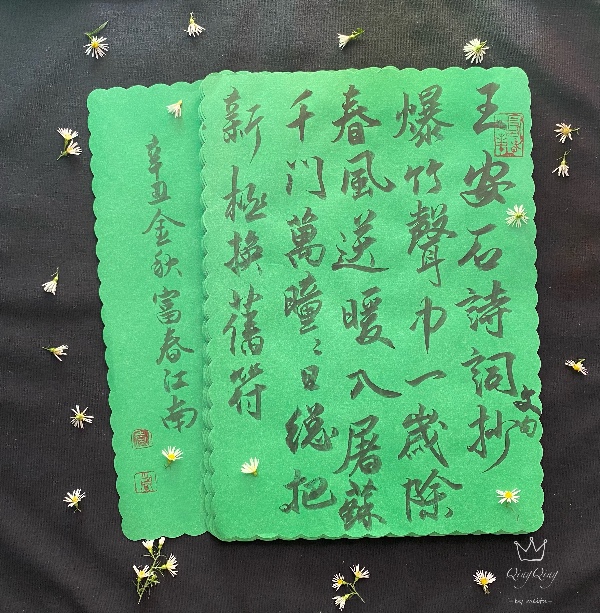 王安石詩詞抄
爆竹聲中一歲除
春風送暖入屠蘇
千門萬瞳〻日總把
新桃換舊符
辛丑金秋富春江南
QingQing
-by meitu-